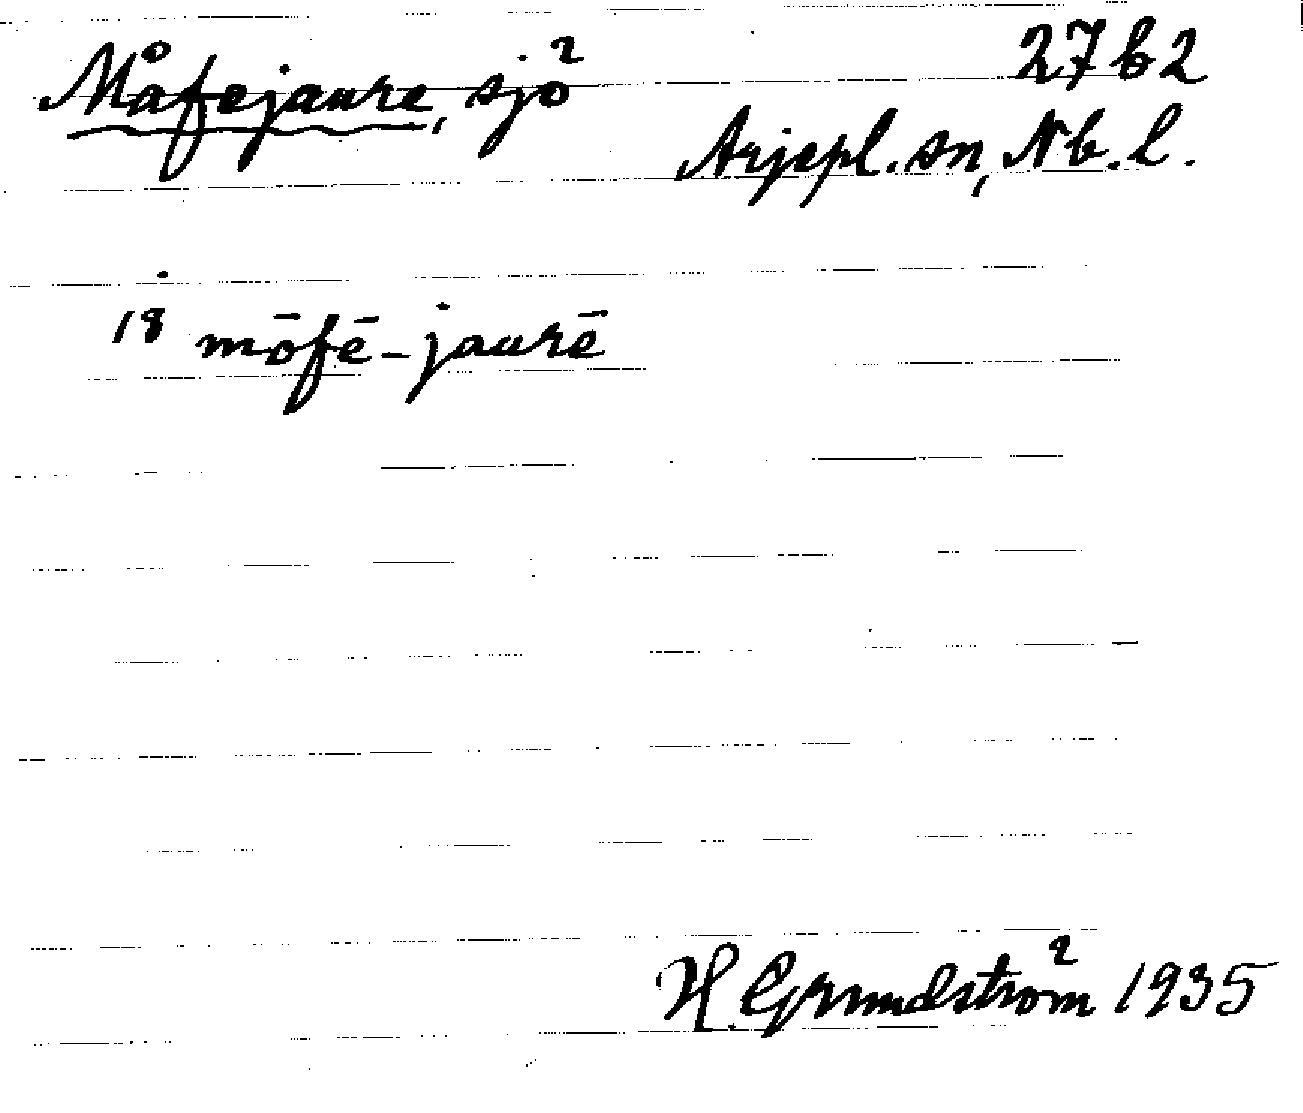 Måfejaure, sjö 27 b 2
Arjepl. sn, Nb. l.
18 mōfē-jaurē
H. Grundström 1935